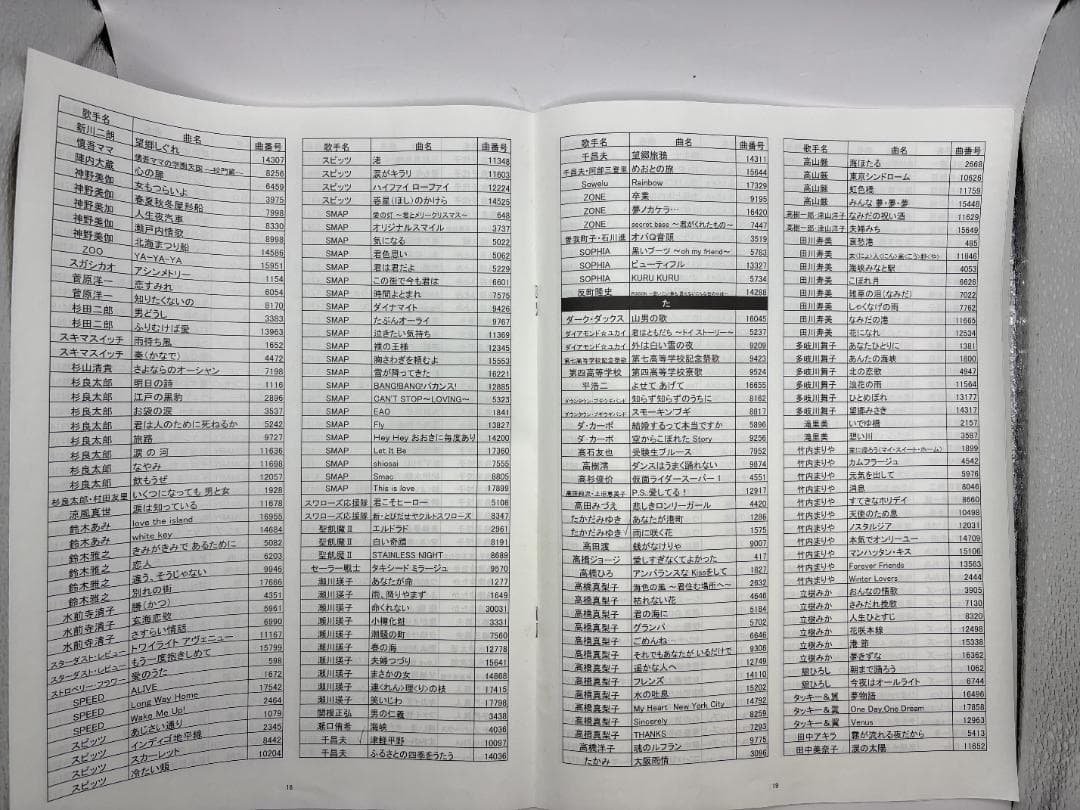 歌手名 曲名 曲番号
新川二朗 望郷しぐれ 14307
慎吾ママ 慎吾ママの学園天国 8256
陣内大蔵 心の扉 6459
神野美伽 女もつらいよ 3975
神野美伽 春夏秋冬屋形船 7998
神野美伽 人生夜汽車 8330
神野美伽 瀬戸内情歌 8998
神野美伽 北海まつり船 14586
ZOO YA-YA-YA 15951
スガシカオ アシンメトリー 1154
菅原洋一 恋すみれ 8054
菅原洋一 知りたくないの 8170
杉田二郎 男どうし 3383
杉田二郎 ふりむけば愛 13963
スキマスイッチ 雨待ち風 1652
スキマスイッチ 奏(かなで) 4472
杉山清貴 さよならのオーシャン 7198
杉良太郎 明日の詩 1116
杉良太郎 江戸の黒豹 2896
杉良太郎 お袋の涙 3537
杉良太郎 君は人のために死ねるか 5242
杉良太郎 旅路 9727
杉良太郎 涙の河 11636
杉良太郎 なやみ 11698
杉良太郎 飲もうぜ 12057
杉良太郎・村田友里 いくつになっても 男と女 1928
涼風真世 涙は知っている 11678
鈴木あみ love the island 16955
鈴木あみ white key 14684
鈴木あみ きみがきみで あるために 5082
鈴木雅之 恋人 6203
鈴木雅之 違う、そうじゃない 9946
鈴木雅之 別れの街 17666
水前寺清子 勝(かつ) 4351
水前寺清子 玄海恋歌 5961
水前寺清子 さすらい情話 6990
スターダスト・レビュー トワイライト アヴェニュー 11167
スターダスト・レビュー もう一度抱きしめて 15799
ストロベリー・フラワー 愛のうた 598
SPEED ALIVE 1672
SPEED Long Way Home 17542
SPEED Wake Me Up! 2464
スピッツ あじさい通り 1079
スピッツ インディゴ地平線 2345
スピッツ スカーレット 8442
スピッツ 冷たい頬 10204
歌手名 曲名 曲番号
スピッツ 渚 11348
スピッツ 涙がキラリ 11603
スピッツ ハイファイ ローファイ 12224
スピッツ 惑星(ほし)のかけら 14525
SMAP 愛の灯 〜君とメリークリスマス〜 648
SMAP オリジナルスマイル 3737
SMAP 気になる 5022
SMAP 君色思い 5062
SMAP 君は君だよ 5229
SMAP この街で今も君は 6601
SMAP 時間よとまれ 7575
SMAP ダイナマイト 9426
SMAP たぶんオーライ 9767
SMAP 泣きたい気持ち 11369
SMAP 裸の王様 12345
SMAP 胸さわぎを頼むよ 15553
SMAP 雪が降ってきた 16221
SMAP BANG!BANG!バカンス! 12885
SMAP CAN'T STOP〜LOVING〜 5323
SMAP EAO 1841
SMAP Fly 13827
SMAP Hey Hey おおきに毎度あり 14200
SMAP Let It Be 17360
SMAP shiosai 7555
SMAP Smac 8805
SMAP This is love 17899
スワローズ応援隊 君こそヒーロー 5106
スワローズ応援隊 新・とびだせヤクルトスワローズ 8347
聖飢魔Ⅱ エルドラド 2961
聖飢魔Ⅱ 白い奇蹟 8191
聖飢魔Ⅱ STAINLESS NIGHT 8689
セーラー戦士 タキシードミラージュ 9570
瀬川瑛子 あなたが命 1277
瀬川瑛子 雨、降りやまず 1649
瀬川瑛子 命くれない 30031
瀬川瑛子 小樽化粧 3331
瀬川瑛子 潮騒の町 7560
瀬川瑛子 春の海 12778
瀬川瑛子 夫婦つづり 15641
瀬川瑛子 まさかの女 14868
瀬川瑛子 連(くれん)理(くり)の枝 17415
瀬川瑛子 笑いじわ 17798
関根正弘 男の仁義 3438
瀬口侑希 海峡 4036
千昌夫 津軽平野 10097
千昌夫 ふるさとの四季をうたう 14036
18
歌手名 曲名 曲番号
千昌夫 望郷旅鴉 14311
千昌夫・阿部三登里 めおとの旅 15644
Sowelu Rainbow 17329
ZONE 卒業 9195
ZONE 夢ノカケラ… 16420
ZONE secret base 〜君がくれたもの〜 7447
曽我町子・石川進 オバQ音頭 3519
SOPHIA 黒いブーツ 〜oh my friend〜 5763
SOPHIA ビューティフル 13327
SOPHIA KURU KURU 5734
反町隆史 14288
た
ダーク・ダックス 山男の歌 16045
ダイアモンド☆ユカイ 君はともだち 〜トイ ストーリー〜 5237
ダイアモンド☆ユカイ 外は白い雪の夜 9209
第七高等学校記念祭歌 第七高等学校記念祭歌 9423
第四高等学校 第四高等学校寮歌 9524
平浩二 よせて あげて 16655
ダウンタウン・ブギウギバンド 知らず知らずのうちに 8162
ダウンタウン・ブギウギバンド スモーキンブギ 8817
ダ・カーポ 結婚するって本当ですか 5896
ダ・カーポ 空からこぼれた Story 9256
高石友也 受験生ブルース 7952
高樹澪 ダンスはうまく踊れない 9874
高杉俊价 仮面ライダースーパー1 4551
P.S. 愛してる! 12917
高田みづえ 悲しきロンリーガール 4420
たかだみゆき あなたが港町 1286
たかだみゆき 雨に咲く花 1575
高田渡 銭がなけりゃ 9007
高橋ジョージ 愛しすぎなくてよかった 417
高橋ひろ アンバランスな Kissをして 1827
高橋真梨子 海色の風 〜君住む場所へ〜 2632
高橋真梨子 枯れない花 4646
高橋真梨子 君の海に 5184
高橋真梨子 グランパ 5702
高橋真梨子 ごめんね… 6646
高橋真梨子 それでもあなたが いるだけで 9308
高橋真梨子 遥かな人へ 12749
高橋真梨子 フレンズ 14110
高橋真梨子 水の吐息 15202
高橋真梨子 My Heart New York City 14792
高橋真梨子 Sincerely 8259
高橋真梨子 THANKS 7293
高橋洋子 魂のルフラン 9775
たかみ 大阪雨情 3096
歌手名 曲名 曲番号
高山厳 海ほたる 2668
高山厳 東京シンドローム 10626
高山厳 虹色橋 11759
高山厳 みんな 夢・夢・夢 15448
高樹一郎・津山洋子 なみだの祝い酒 11629
高樹一郎・津山洋子 夫婦みち 15649
田川寿美 哀愁港 485
田川寿美 11846
田川寿美 海峡みなと駅 4053
田川寿美 こぼれ月 6626
田川寿美 雑草の泪(なみだ) 7022
田川寿美 しゃくなげの雨 7762
田川寿美 なみだの港 11665
田川寿美 花になれ 12534
多岐川舞子 あなたひとりに 1381
多岐川舞子 あんたの海峡 1800
多岐川舞子 北の恋歌 4947
多岐川舞子 浪花の雨 11564
多岐川舞子 ひとめぼれ 13177
多岐川舞子 望郷みさき 14317
滝里美 いでゆ橋 2157
滝里美 想い川 3587
竹内まりや 家に帰ろう(マイ・スイート・ホーム) 1899
竹内まりや カムフラージュ 4542
竹内まりや 元気を出して 5976
竹内まりや 消息 8046
竹内まりや すてきなホリデイ 8660
竹内まりや 天使のため息 10498
竹内まりや ノスタルジア 12031
竹内まりや 本気でオンリーユー 14709
竹内まりや マンハッタン・キス 15106
竹内まりや Forever Friends 13563
竹内まりや Winter Lovers 2444
立樹みか おんなの情歌 3905
立樹みか さみだれ挽歌 7130
立樹みか 人生ひとすじ 8320
立樹みか 花咲本線 12498
立樹みか 港 節 15338
立樹みか 夢きずな 16362
舘ひろし 朝まで踊ろう 1062
舘ひろし 今夜はオールライト 6744
タッキー&翼 夢物語 16496
タッキー&翼 One Day,One Dream 17858
タッキー&翼 Venus 12963
田中アキラ 霧が流れる夜だから 5413
田中美奈子 涙の太陽 11652
19